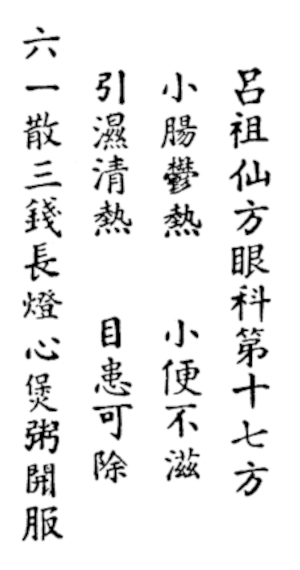 呂祖仙方眼科第十七方
小腸鬱熱　小便不滋
引濕清熱　目患可除
六一散三錢長燈心煲粥開服